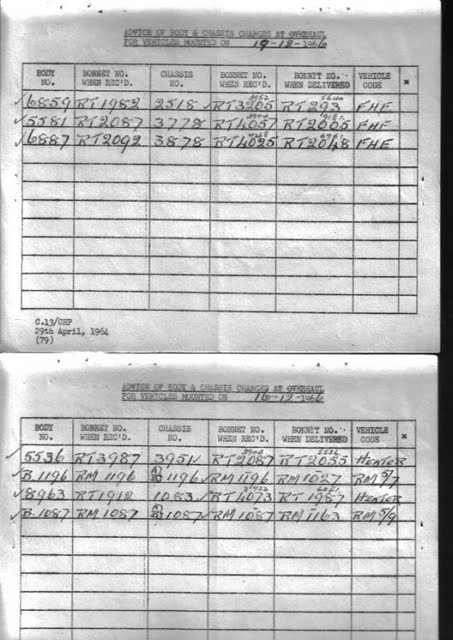 ADVICE OF BODY & CHASSIS CHANGES AT OVERHAUL
FOR VEHICLES MOUNTED ON 19-12-1966
BODY NO. BONNET NO. WHEN REC'D. CHASSIS NO. BONNET NO. WHEN REC'D. BONNET NO. WHEN DELIVERED VEHICLE CODE *
✓6859 RT1982 2518 ✓RT3205 RT293 FHF
✓5581 RT2087 3778 RT4057 RT2005 FHF
✓6887 RT2092 3878 RT4025 RT2048 FHF
C.13/CHP
29th April, 1964
(79)
ADVICE OF BODY & CHASSIS CHANGES AT OVERHAUL
FOR VEHICLES MOUNTED ON 16-12-1966
BODY NO. BONNET NO. WHEN REC'D. CHASSIS NO. BONNET NO. WHEN REC'D. BONNET NO. WHEN DELIVERED VEHICLE CODE *
✓5536 RT3987 3951 RT2087 RT2055 HEATER
✓B.1196 RM 1196 1196 RM 1196 RM 1027 RM 5/7
✓8963 RT1912 1083 RT4073 RT 1987 HEATER
✓B.1087 RM 1087 1087 ✓RM 1087 RM 1163 RM 5/9